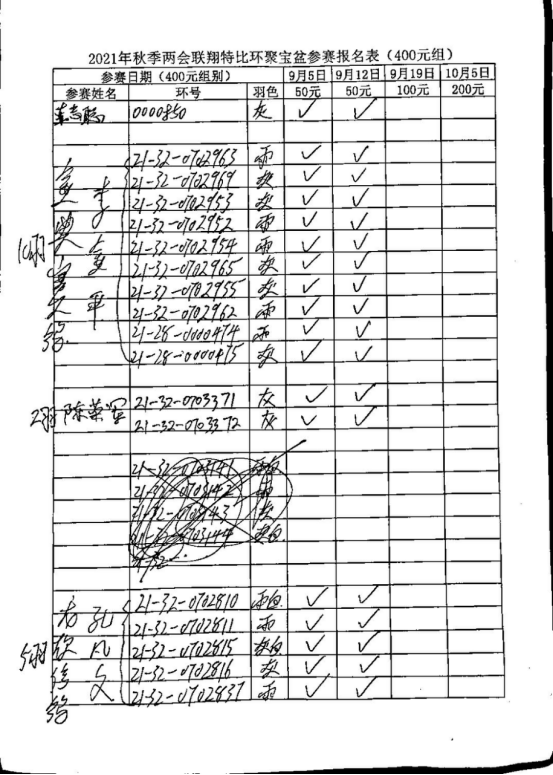 2021年秋季两会联翔特比环聚宝盆参赛报名表（400元组）
参赛日期（400元组别） 9月5日 9月12日 9月19日 10月5日
参赛姓名 环号 羽色 50元 50元 100元 200元
0000850 灰 ✓ ✓
21-32-0702963 雨 ✓ ✓
21-32-0702969 灰 ✓ ✓
21-32-0702953 灰 ✓ ✓
21-32-0702952 雨 ✓ ✓
10羽 21-32-0702954 雨 ✓ ✓
21-32-0702965 灰 ✓ ✓
21-32-0702955 灰 ✓ ✓
21-32-0702962 雨 ✓ ✓
21-28-0000474 雨 ✓ ✓
21-28-0000475 灰 ✓ ✓
2羽 陈荣军 21-32-0703371 灰 ✓ ✓
21-32-0703372 灰 ✓ ✓
21-32-0703141
21-32-0703142
21-32-0703144
21-32-
21-32-0702810 雨白 ✓ ✓
21-32-0702811 雨 ✓ ✓
5羽 21-32-0702815 灰白 ✓ ✓
21-32-0702816 灰 ✓ ✓
21-32-0702837 雨 ✓ ✓